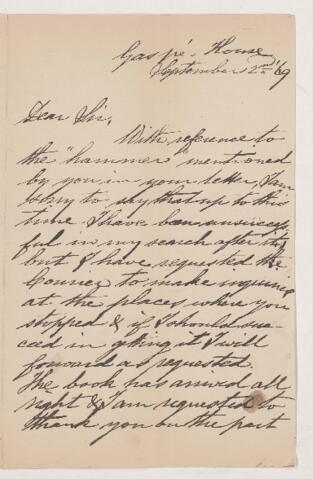 Gaspé House
September 2nd '69
Dear Sir,
With reference to
the "hammer" mentioned
by you in your letter, I am
sorry to say that up to this
time I have been unsuccess
ful in my search after it,
but I have requested the
Courier to make inquiries
at the places where you
stopped & if I should suc-
ceed in getting it I will
forward as requested.
The book has arrived all
right & I am requested to
thank you on the part